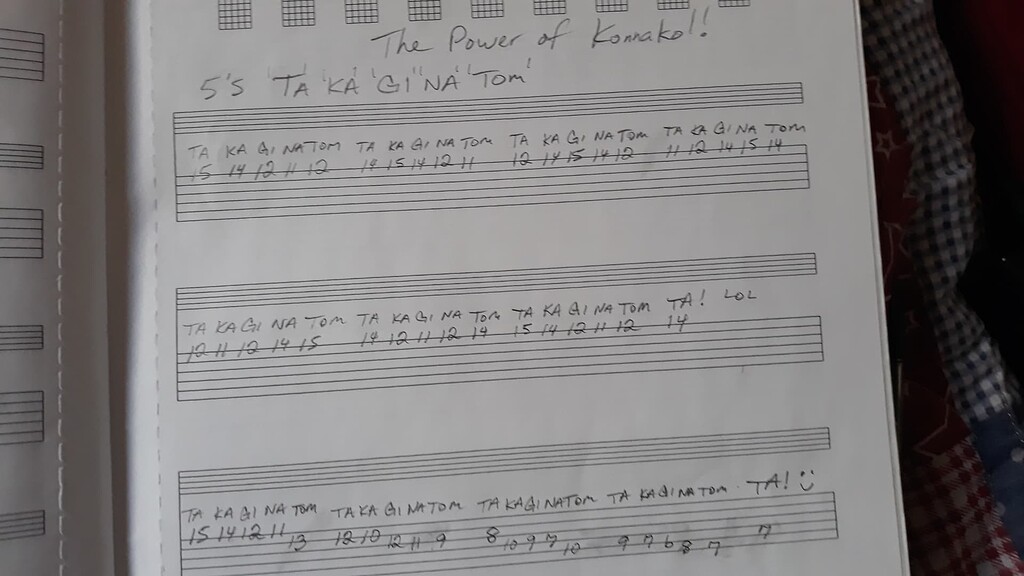 The Power of Konnakol!
5's 'TA' 'KA' 'GI' 'NA' 'TOM'
TA KA GI NA TOM TA KA GI NA TOM TA KA GI NA TOM TA KA GI NA TOM
15 14 12 11 12 14 15 14 12 11 12 14 15 14 12 11 12 14 15 14
TA KA GI NA TOM TA KA GI NA TOM TA KA GI NA TOM TA! LOL
12 11 12 14 15 14 12 11 12 14 15 14 12 11 12 14
TA KA GI NA TOM TA KA GI NA TOM TA KA GI NA TOM TA KA GI NA TOM TA!
15 14 12 11 13 12 10 12 11 9 8 10 9 7 10 9 7 6 8 7 7